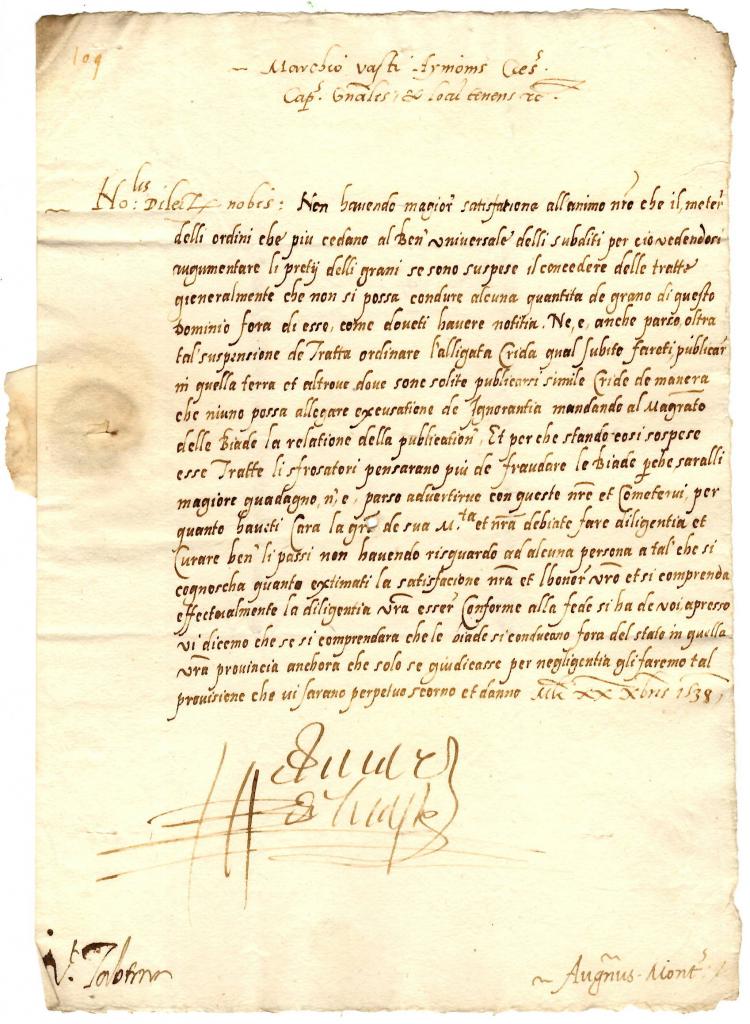 109
Marchio vasti Aymonis Ces.
Cap. Gnales, & locu tenens etc.
No:lis Dilect nobis: Non havendo magior satisfatione all animo nro che il meter
delli ordini che piu cedano al Ben universale delli subditi per cio vedendosi
augumentare li pretij delli grani se sono suspese il concedere delle tratte
gieneralmente che non si possa condure alcuna quantita de grano di questo
Dominio fora di esso, come doveti havere notitia. Ne, e, anche parso, oltra
tal suspensione de Tratta ordinare l'alligata Crida qual subito fareti publicar
in quella terra et altrove dove sono solite publicarsi simile Cride de manera
che niuno possa allegare excusatione de Ignorantia mandando al Magrato
delle Biade la relatione della publication, Et per che stando cosi sospese
esse Tratte li sfrosatori pensarano piu de fraudare le Biade perche saralli
magiore guadagno, n, e, parso advertirve con queste nre et Cometervi, per
quanto haveti Cara la gra de sua M.ta et nra debiate fare diligentia et
Curare ben li passi non havendo risguardo ad alcuna persona a tal che si
cognoscha quanto extimati la satisfacione nra et lhonor vro et si comprenda
effectualmente la diligentia vra esser Conforme alla fede si ha de voi, apresso
vi dicemo che se si comprendara che le biade si conducano fora del stato in quella
vra provincia anchora che solo se giudicasse per negligentia gli faremo tal
provisione che vi sarano perpetuo scorno et danno Mli XX Xbris 1538,
V.t
Augnus Mont.